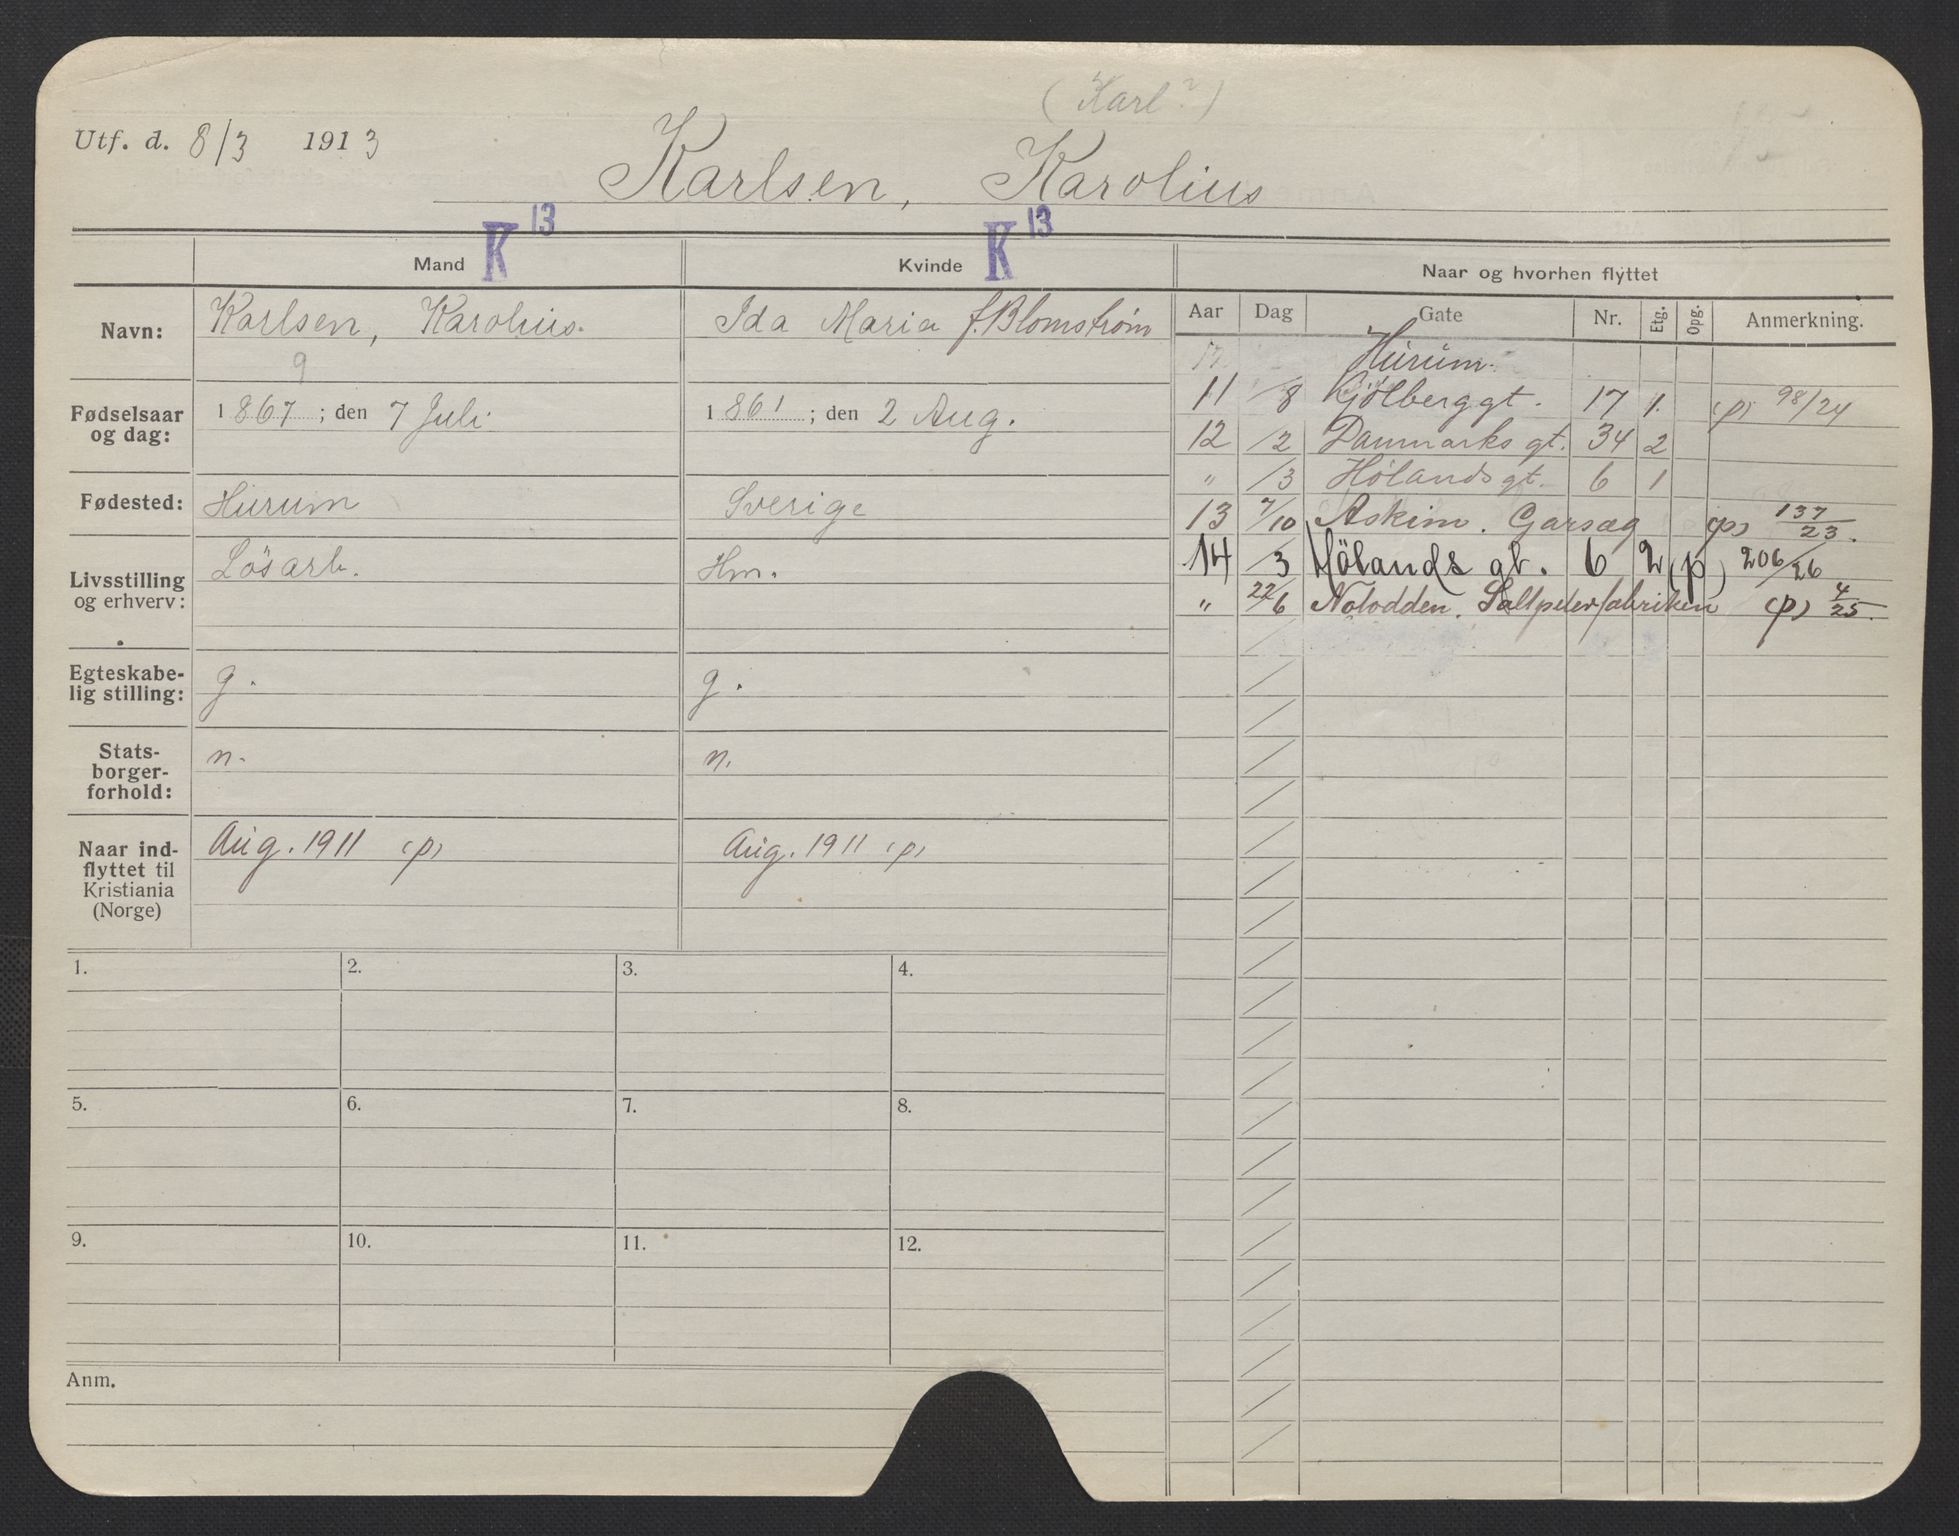 (Karl?)
Utf. d. 8/3 1913
Karlsen, Karolius
K 13 K 13
Mand Kvinde Naar og hvorhen flyttet
Navn: Karlsen, Karolius. Ida Maria f. Blomstrøm
9
Fødselsaar og dag: 1867; den 7 Juli 1861; den 2 Aug.
Fødested: Hurum Sverige
Livsstilling og erhverv: Lösarb. Hm.
Egteskabe-
lig stilling: g. g.
Stats-
borger-
forhold: n. n.
Naar ind-
flyttet til
Kristiania
(Norge) Aug. 1911 (p) Aug. 1911 (p)
Aar Dag Gate Nr. Etg. Opg. Anmerkning.
Hurum.
11 /8 Kjølberggt. 17 1. (p) 98/24
12 /2 Danmarks gt. 34 2
" /3 Hølandsgt. 6 1
13 7/10 Askim. Garsæg (p) 137/23.
14 /3 Hölands gt. 6 2 (p) 206/26
" 22/6 Notodden. Saltpeterfabriken (p) 4/25.
1. 2. 3. 4.
5. 6. 7. 8.
9. 10. 11. 12.
Anm.